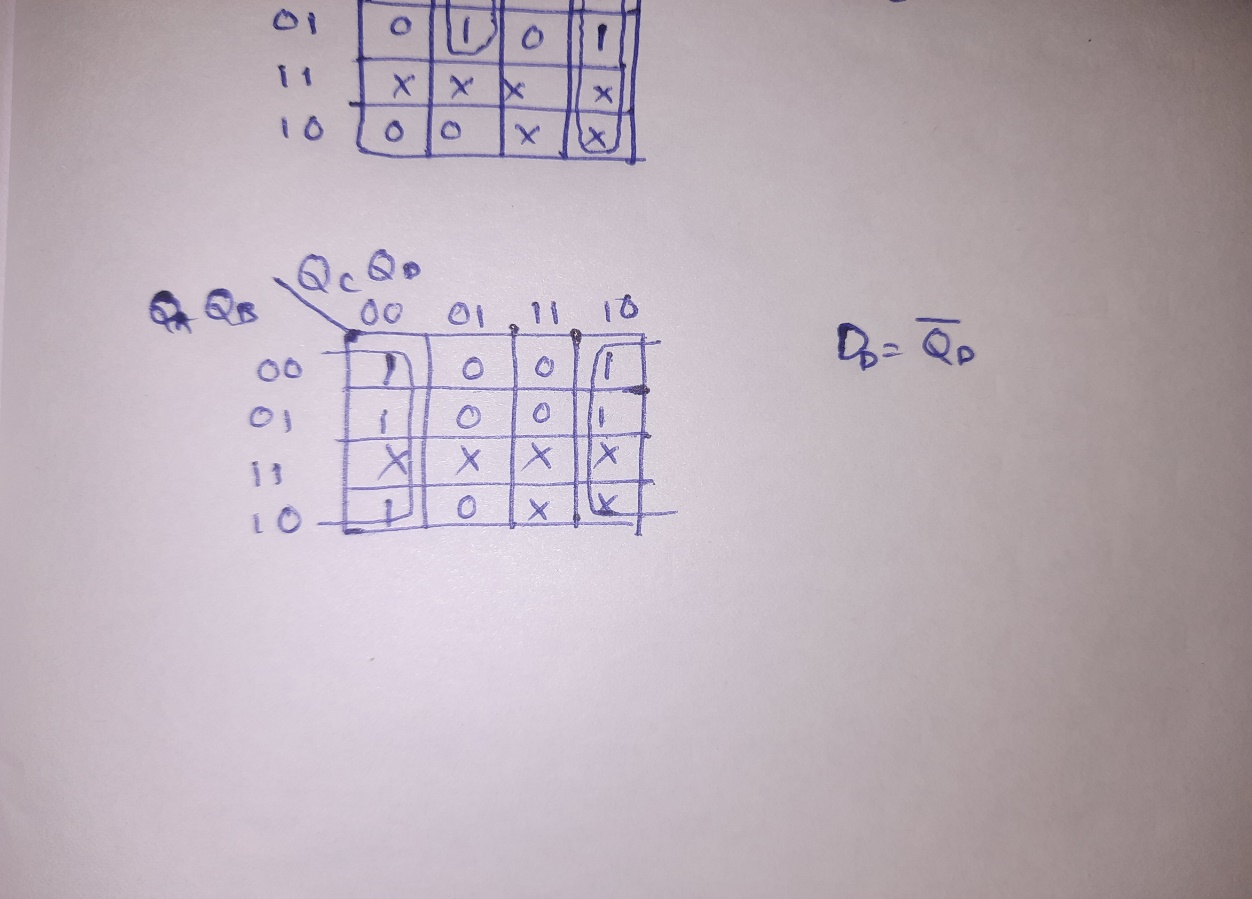 01 0 1 0 1
11 X X X X
10 0 0 X X
QC QD
QA QB 00 01 11 10
00 1 0 0 1 DD = Q̅D
01 1 0 0 1
11 X X X X
10 1 0 X X